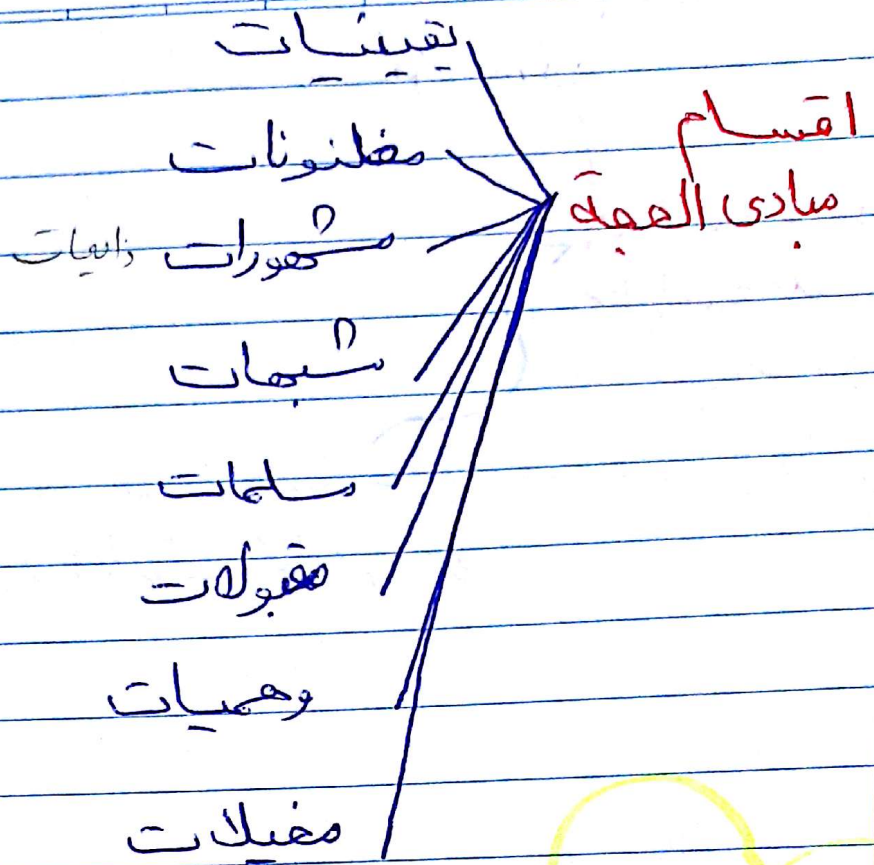 اقسام
مبادی الحجة
یقینیات
مظنونات
مشهورات ذایعات
شبهات
سلمات
مقبولات
وهمیات
مخیلات